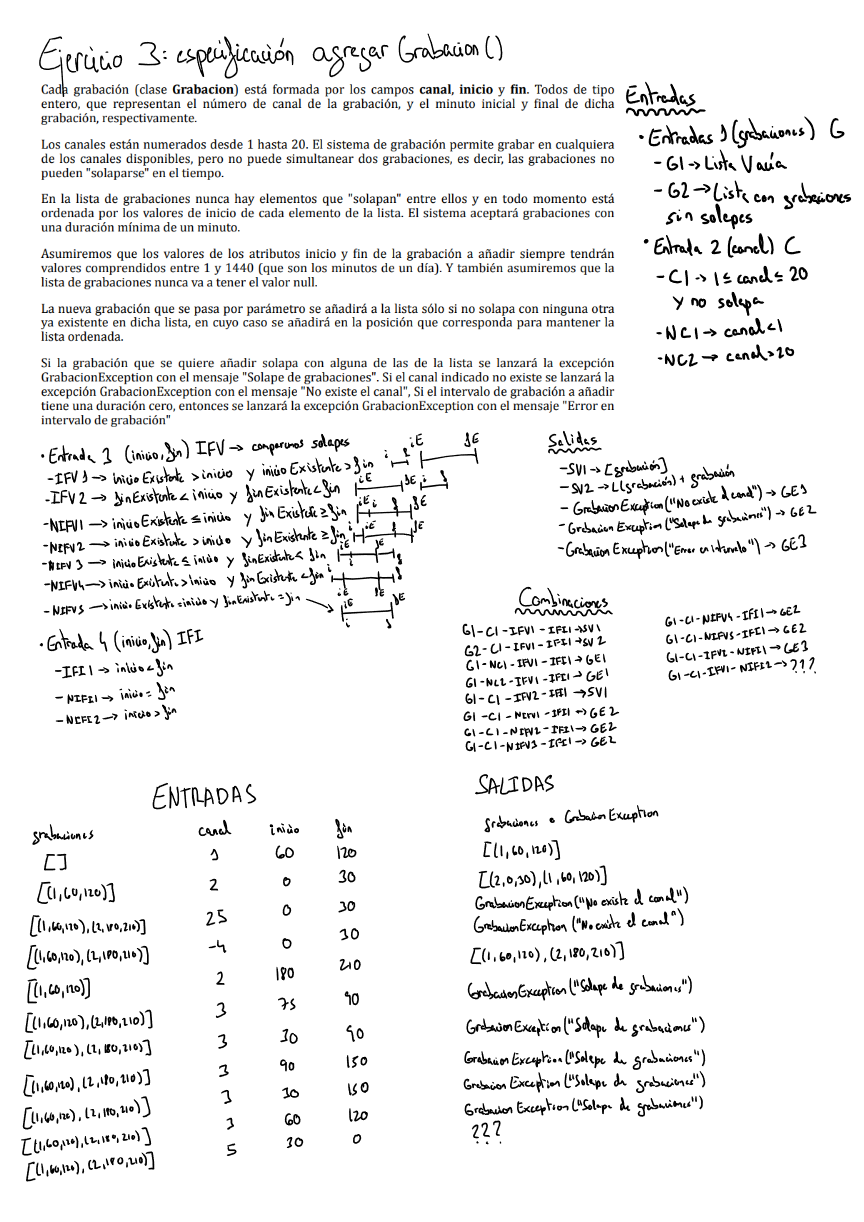 Ejercicio 3: especificación agregar Grabacion()
Cada grabación (clase Grabacion) está formada por los campos canal, inicio y fin. Todos de tipo
entero, que representan el número de canal de la grabación, y el minuto inicial y final de dicha
grabación, respectivamente.
Los canales están numerados desde 1 hasta 20. El sistema de grabación permite grabar en cualquiera
de los canales disponibles, pero no puede simultanear dos grabaciones, es decir, las grabaciones no
pueden "solaparse" en el tiempo.
En la lista de grabaciones nunca hay elementos que "solapan" entre ellos y en todo momento está
ordenada por los valores de inicio de cada elemento de la lista. El sistema aceptará grabaciones con
una duración mínima de un minuto.
Asumiremos que los valores de los atributos inicio y fin de la grabación a añadir siempre tendrán
valores comprendidos entre 1 y 1440 (que son los minutos de un día). Y también asumiremos que la
lista de grabaciones nunca va a tener el valor null.
La nueva grabación que se pasa por parámetro se añadirá a la lista sólo si no solapa con ninguna otra
ya existente en dicha lista, en cuyo caso se añadirá en la posición que corresponda para mantener la
lista ordenada.
Si la grabación que se quiere añadir solapa con alguna de las de la lista se lanzará la excepción
GrabacionException con el mensaje "Solape de grabaciones". Si el canal indicado no existe se lanzará la
excepción GrabacionException con el mensaje "No existe el canal", Si el intervalo de grabación a añadir
tiene una duración cero, entonces se lanzará la excepción GrabacionException con el mensaje "Error en
intervalo de grabación"
Entradas
• Entradas 1 (grabaciones) G
- G1 → Lista Vacía
- G2 → Lista con grabaciones
sin solapes
• Entrada 2 (canal) C
- C1 → 1 ≤ canal ≤ 20
y no solapa
- NC1 → canal < 1
- NC2 → canal > 20
• Entrada 3 (inicio, fin) IFV → comparamos solapes
- IFV1 → inicioExistente > inicio y inicioExistente > fin
- IFV2 → finExistente < inicio y finExistente < fin
- NIFV1 → inicioExistente ≤ inicio y finExistente ≥ fin
- NIFV2 → inicioExistente > inicio y finExistente ≥ fin
- NIFV3 → inicioExistente ≤ inicio y finExistente < fin
- NIFV4 → inicioExistente > inicio y finExistente < fin
- NIFV5 → inicioExistente = inicio y finExistente = fin
i iE fE
iE fE i
iE i fE
i iE fE
iE fE
i iE fE f
iE fE
i f
• Entrada 4 (inicio, fin) IFI
- IFI1 → inicio < fin
- NIFI1 → inicio = fin
- NIFI2 → inicio > fin
Salidas
- SV1 → [grabación]
- SV2 → L(grabación) + grabación
- GrabacionException("No existe el canal") → GE1
- GrabacionException("Solape de grabaciones") → GE2
- GrabacionException("Error en intervalo") → GE3
Combinaciones
G1-C1-IFV1-IFI1 → SV1
G2-C1-IFV1-IFI1 → SV2
G1-NC1-IFV1-IFI1 → GE1
G1-NC2-IFV1-IFI1 → GE1
G1-C1-IFV2-IFI1 → SV1
G1-C1-NIFV1-IFI1 → GE2
G1-C1-NIFV2-IFI1 → GE2
G1-C1-NIFV3-IFI1 → GE2
G1-C1-NIFV4-IFI1 → GE2
G1-C1-NIFV5-IFI1 → GE2
G1-C1-IFV1-NIFI1 → GE3
G1-C1-IFV1-NIFI2 → ???
ENTRADAS SALIDAS
grabaciones canal inicio fin grabaciones o GrabacionException
[] 1 60 120 [(1,60,120)]
[(1,60,120)] 2 0 30 [(2,0,30),(1,60,120)]
[(1,60,120),(2,180,210)] 25 0 30 GrabacionException("No existe el canal")
[(1,60,120),(2,180,210)] -4 0 30 GrabacionException("No existe el canal")
[(1,60,120)] 2 180 210 [(1,60,120),(2,180,210)]
[(1,60,120),(2,180,210)] 3 75 90 GrabacionException("Solape de grabaciones")
[(1,60,120),(2,180,210)] 3 30 90 GrabacionException("Solape de grabaciones")
[(1,60,120),(2,180,210)] 3 90 150 GrabacionException("Solape de grabaciones")
[(1,60,120),(2,180,210)] 3 30 150 GrabacionException("Solape de grabaciones")
[(1,60,120),(2,180,210)] 3 60 120 GrabacionException("Solape de grabaciones")
[(1,60,120),(2,180,210)] 5 30 0 ???